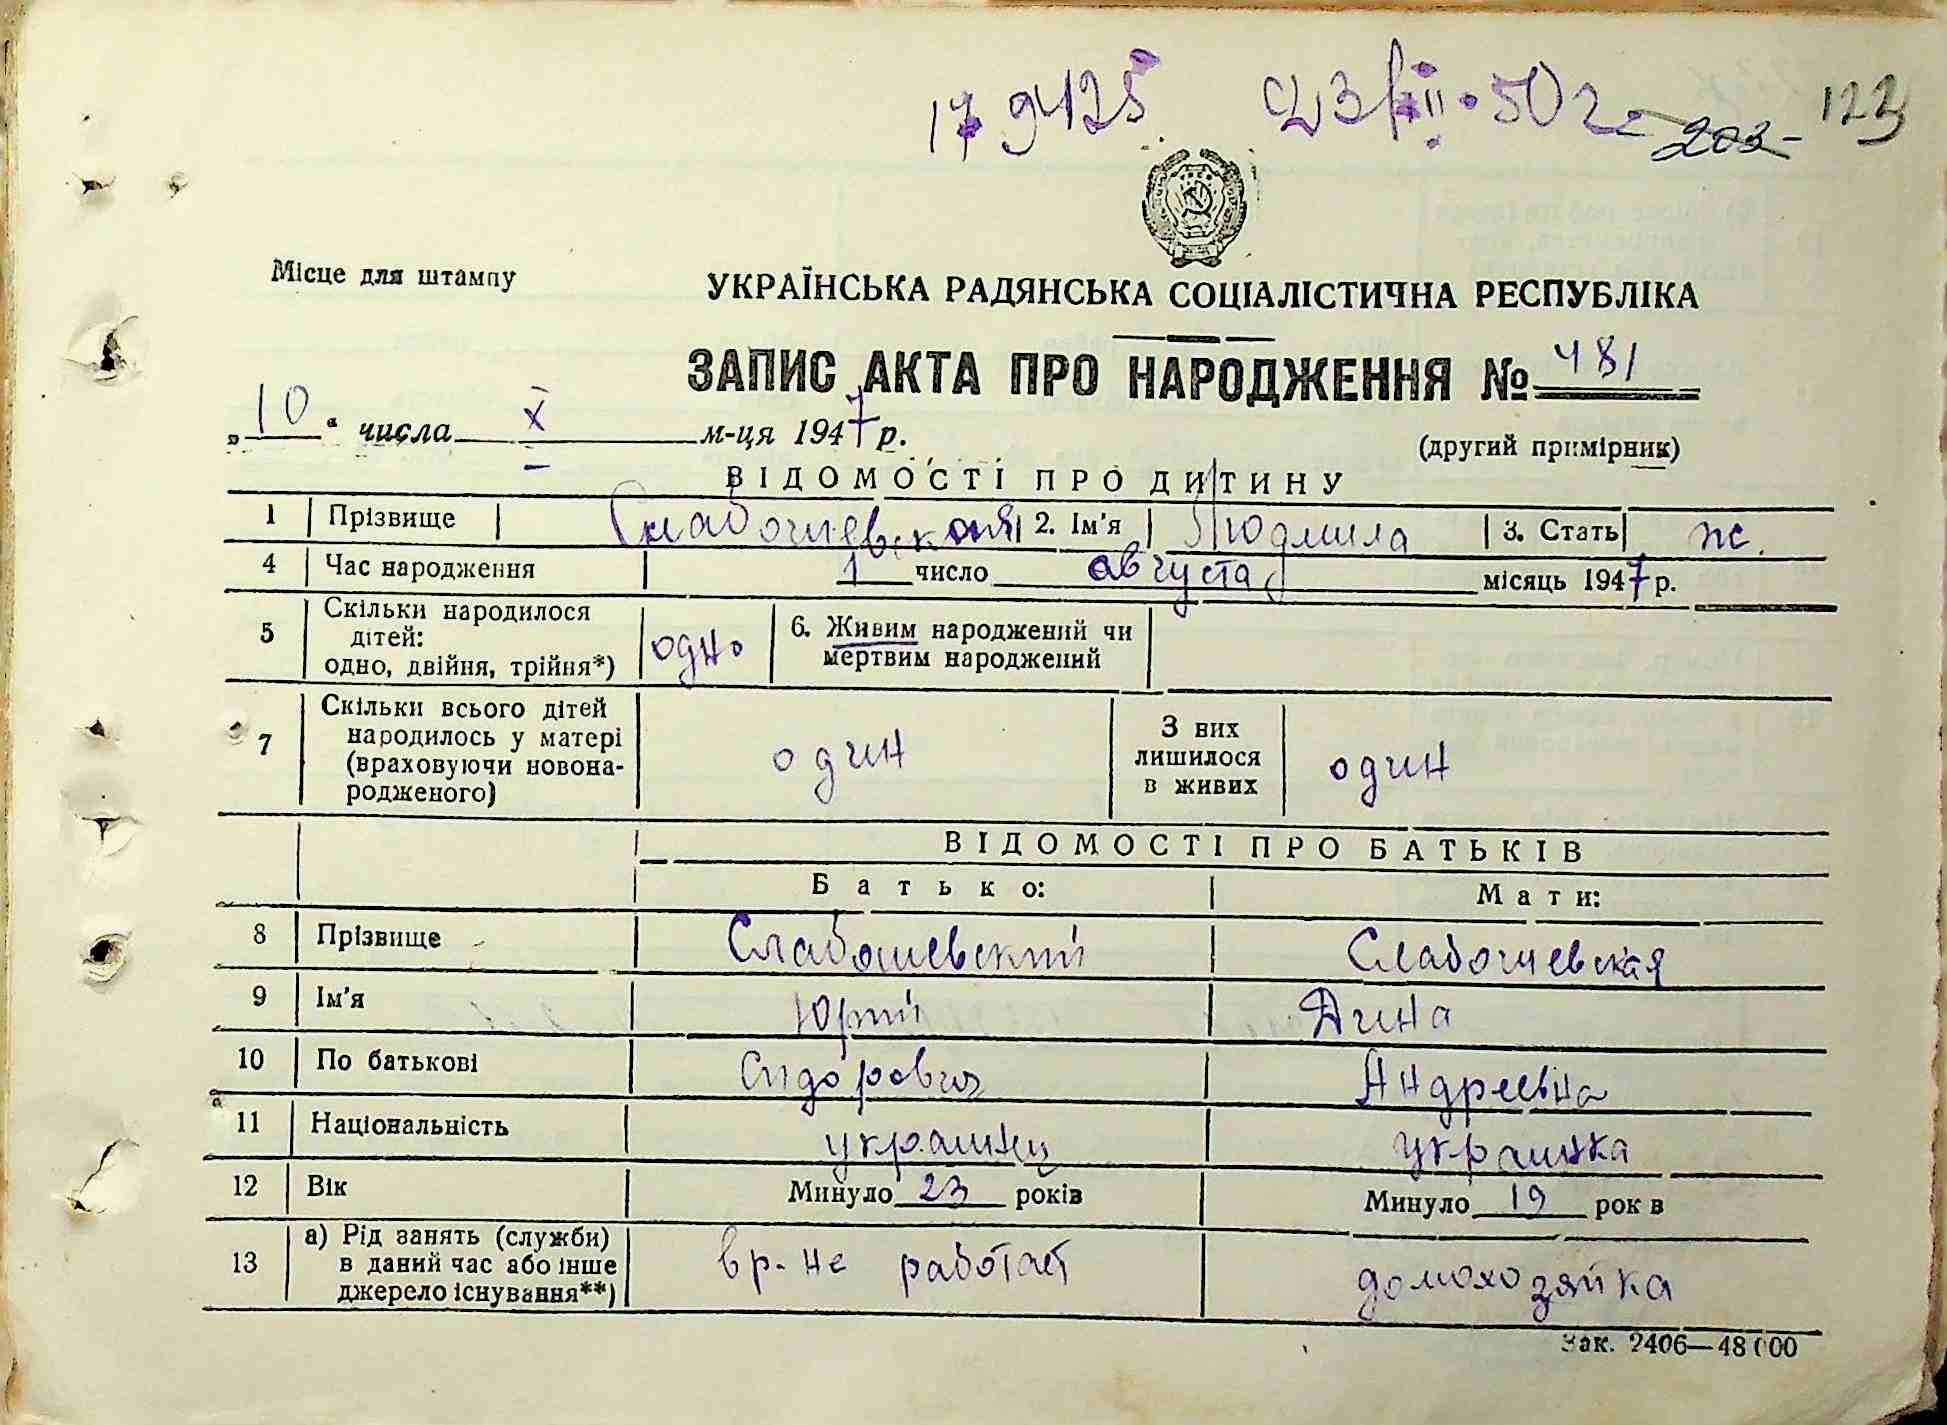 179125 23/XII.50 г. 203 123
Місце для штампу
УКРАЇНСЬКА РАДЯНСЬКА СОЦІАЛІСТИЧНА РЕСПУБЛІКА
ЗАПИС АКТА ПРО НАРОДЖЕННЯ № 481
„10“ числа X м-ця 1947 р.
(другий примірник)
ВІДОМОСТІ ПРО ДИТИНУ
1 Прізвище Слабошевская 2. Ім'я Людмила 3. Стать ж.
4 Час народження 1 число августа місяць 1947 р.
5 Скільки народилося дітей: одно, двійня, трійня*) одно 6. Живим народжений чи мертвим народжений
7 Скільки всього дітей народилось у матері (враховуючи новонародженого) один З них лишилося в живих один
ВІДОМОСТІ ПРО БАТЬКІВ
Батько: Мати:
8 Прізвище Слабошевский Слабошевская
9 Ім'я Юрий Дина
10 По батькові Сидорович Андреевна
11 Національність украинец украинка
12 Вік Минуло 23 років Минуло 19 рок в
13 а) Рід занять (служби) в даний час або інше джерело існування**) вр. не работает домохозяйка
Зак. 2406—48000